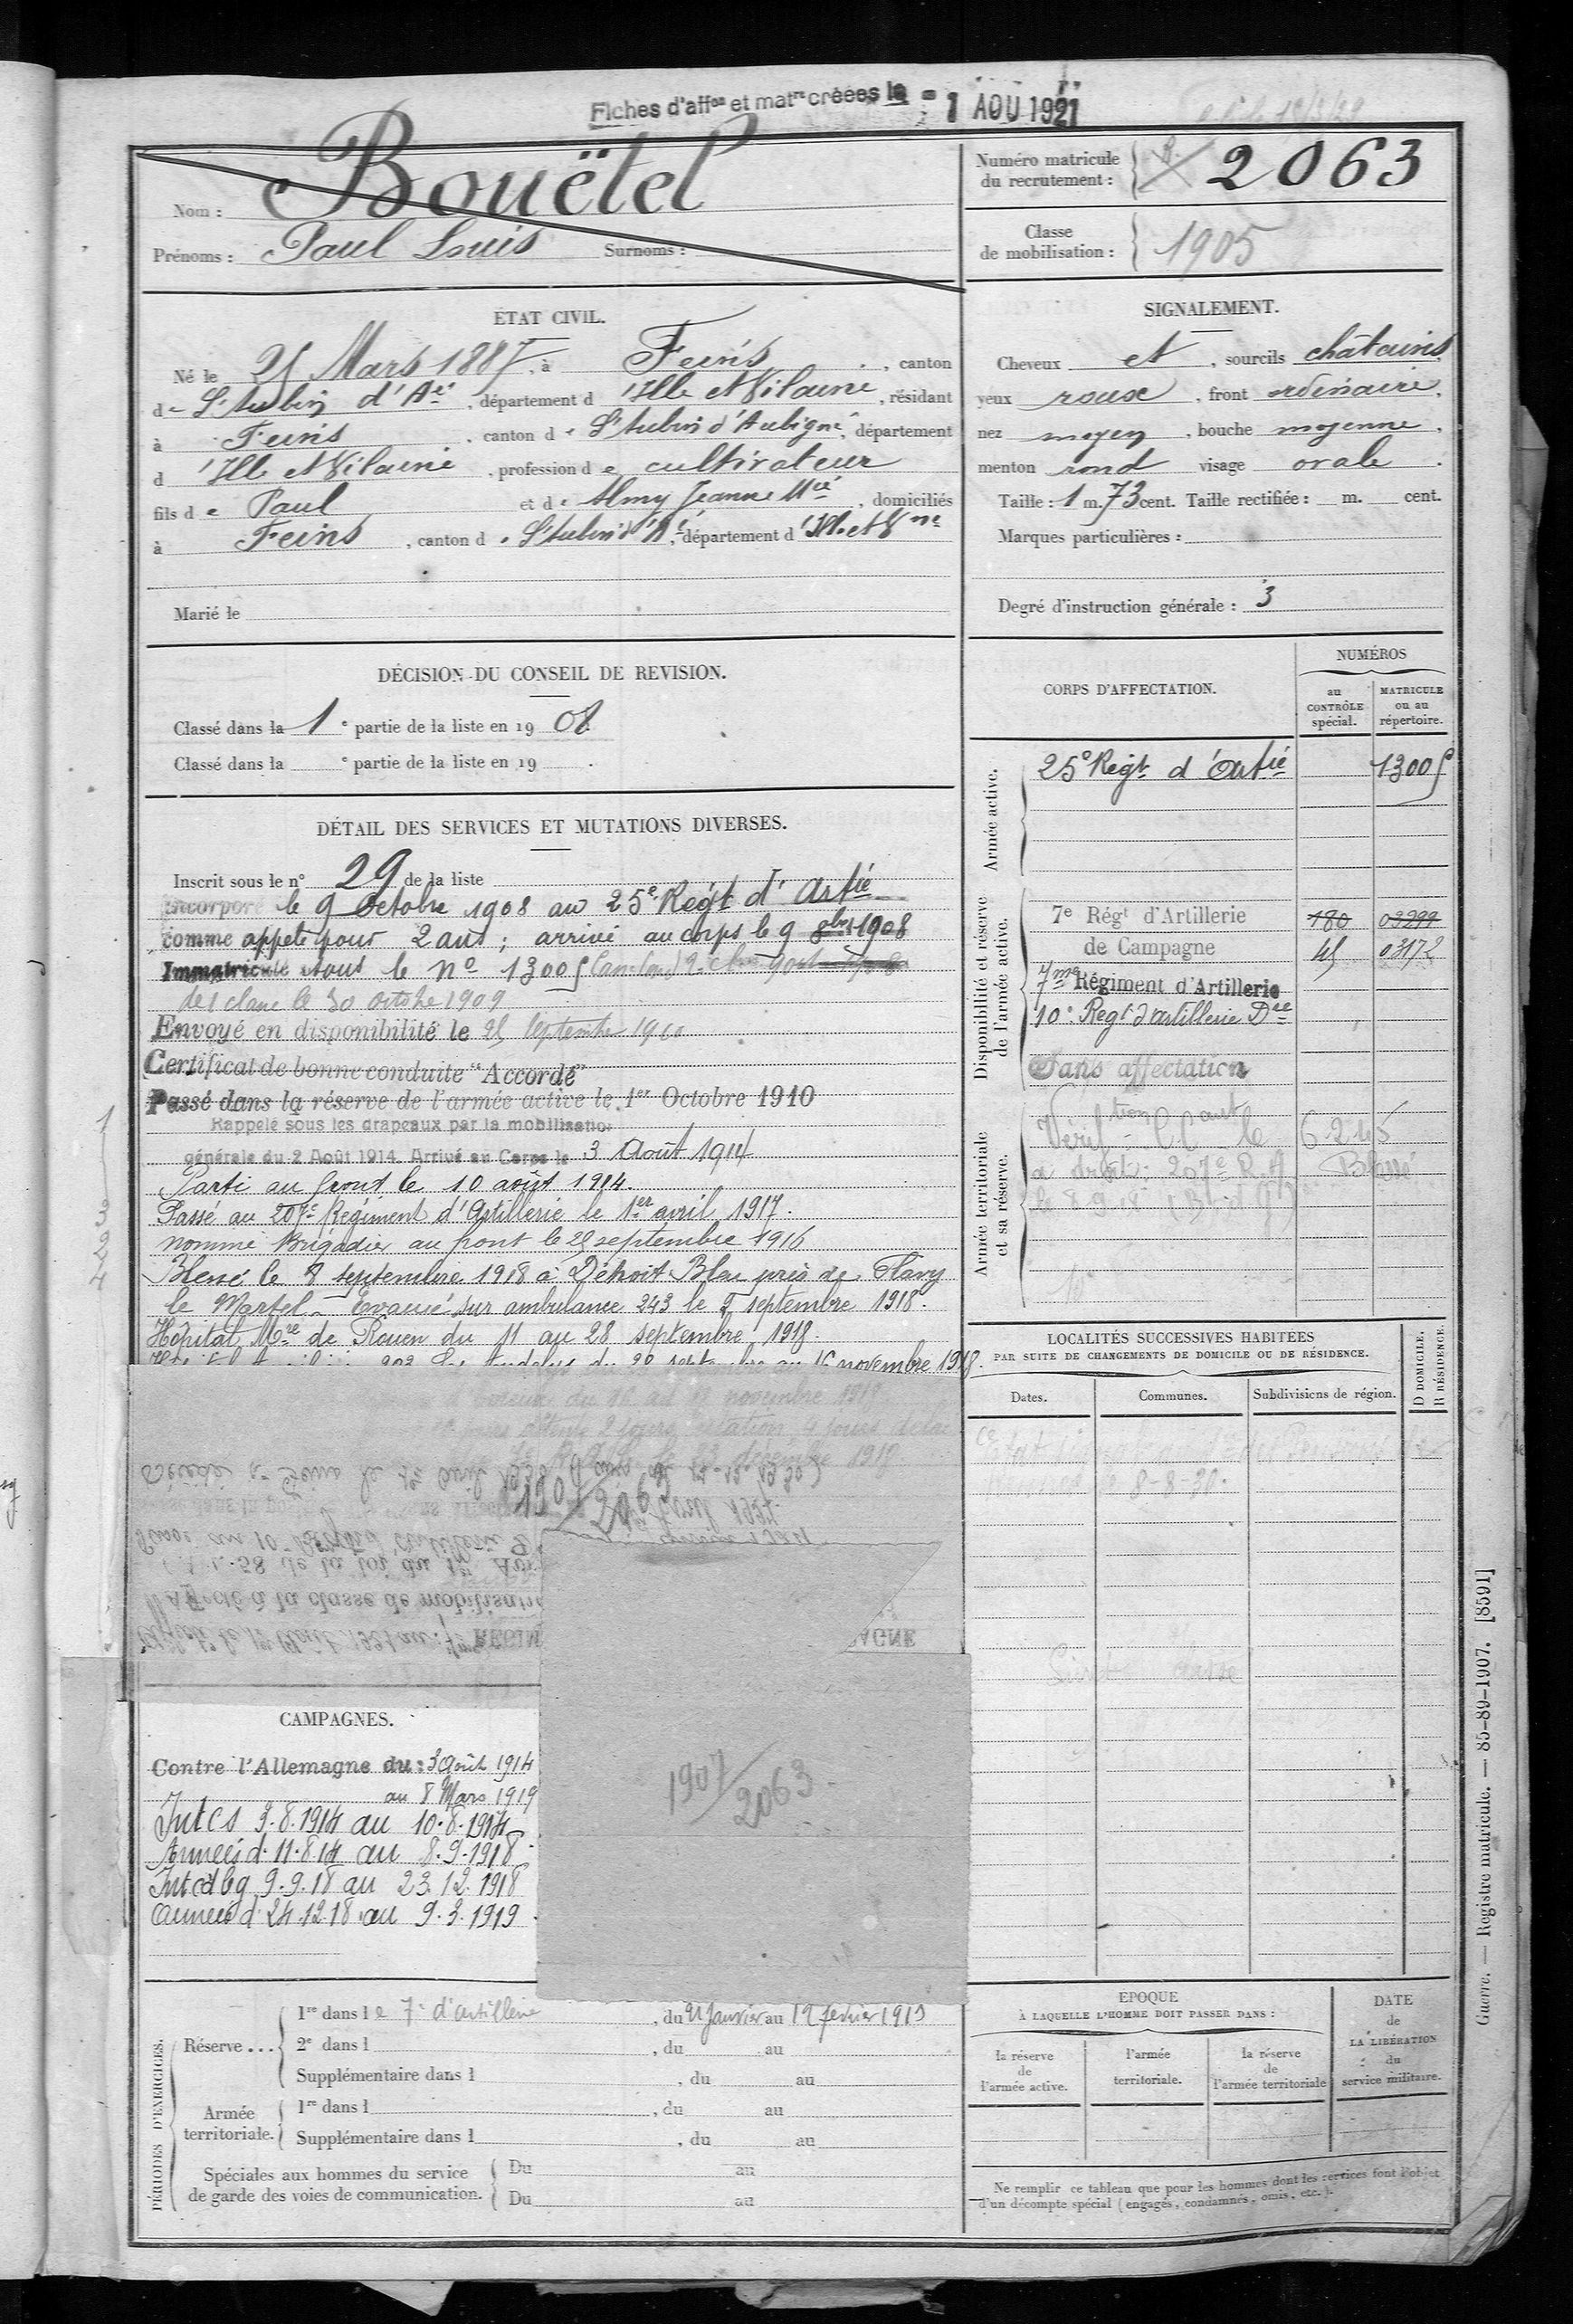 Fiches d'aff on et mat re créées le - 1 AOU 1921
Nom : Bouëtel
Prénoms : Paul Louis Surnoms :
Numéro matricule du recrutement : 2063
Classe de mobilisation : 1905
ÉTAT CIVIL.
Né le 25 Mars 1887, à Feins, canton
de St Aubin d'Aé, département d'Ille et Vilaine, résidant
à Feins, canton de St Aubin d'Aubigné, département
d'Ille et Vilaine, profession de cultivateur
fils de Paul et de Almy Jeanne Mie, domiciliés
à Feins, canton de St Aubin d'Aé, département d'Ille et Vne
Marié le
SIGNALEMENT.
Cheveux et, sourcils châtains
yeux roux, front ordinaire,
nez moyen, bouche moyenne,
menton rond visage ovale.
Taille : 1 m. 73 cent. Taille rectifiée : m. cent.
Marques particulières :
Degré d'instruction générale : 3
DÉCISION DU CONSEIL DE REVISION.
Classé dans la 1e partie de la liste en 1908
Classé dans la e partie de la liste en 19 .
DÉTAIL DES SERVICES ET MUTATIONS DIVERSES.
Inscrit sous le n° 29 de la liste
Incorporé le 9 Octobre 1908 au 25e Régt d'Artie
comme appelé pour 2 ans ; arrivé au corps le 9 8bre 1908
Immatriculé sous le No 13005
de 1 classe le 30 octobre 1909
Envoyé en disponibilité le 25 septembre 1910
Certificat de bonne conduite "Accordé"
Passé dans la réserve de l'armée active le 1er Octobre 1910
Rappelé sous les drapeaux par la mobilisation
générale du 2 Août 1914. Arrivé au Corps le 3 Août 1914
Parti au front le 10 août 1914.
Passé au 207e Régiment d'Artillerie le 1er avril 1917.
nommé Brigadier au front le 25 septembre 1916
Blessé le 8 septembre 1918 à Détroit Bleu près de Flavy
le Martel - Evacué sur ambulance 243 le 9 septembre 1918.
Hôpital Mre de Rouen du 11 au 28 septembre 1918.
novembre 1918.
1907/2063
AGNE
CORPS D'AFFECTATION.
NUMÉROS
au CONTRÔLE spécial.
MATRICULE ou au répertoire.
Armée active.
25e Régt d'Artie 13005
Disponibilité et réserve de l'armée active.
7e Régt d'Artillerie 180 03299
de Campagne 45 03172
7me Régiment d'Artillerie
10e Regt d'artillerie Dre
Sans affectation
Armée territoriale et sa réserve.
207e R.A Blessé
le 8 9 18
LOCALITÉS SUCCESSIVES HABITÉES
PAR SUITE DE CHANGEMENTS DE DOMICILE OU DE RÉSIDENCE.
D DOMICILE. R RÉSIDENCE.
Dates. Communes. Subdivisions de région.
8-8-30.
CAMPAGNES.
Contre l'Allemagne du : 3 Août 1914
au 8 Mars 1919
Int cs 3.8.1914 au 10.8.1914
Armées d. 11.8.14 au 8.9.1918
Int cd bg 9.9.18 au 23.12.1918
Armées d. 24.12.18 au 9.3.1919
1907/2063
PÉRIODES D'EXERCICES.
Réserve... 1re dans le 7e d'artillerie, du 21 Janvier au 12 février 1913
2e dans l , du au
Supplémentaire dans l , du au
Armée territoriale. 1re dans l , du au
Supplémentaire dans l , du au
Spéciales aux hommes du service de garde des voies de communication. Du au
Du au
ÉPOQUE
À LAQUELLE L'HOMME DOIT PASSER DANS :
la réserve de l'armée active.
l'armée territoriale.
la réserve de l'armée territoriale
DATE de LA LIBÉRATION du service militaire.
Ne remplir ce tableau que pour les hommes dont les services font l'objet
d'un décompte spécial (engagés, condamnés, omis, etc.).
Guerre. — Registre matricule. — 85-89-1907. [8591]